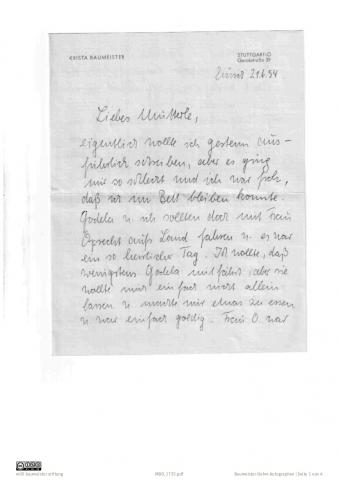 KRISTA BAUMEISTER
STUTTGART-O
Gerokstraße 39
Zürich 21.6.54
Liebes Mutterle,
eigentlich wollte ich gestern aus-
führlich schreiben, aber es ging
mir so schlecht und ich war froh,
daß ich im Bett bleiben konnte.
Godela u. ich sollten doch mit Frau
Oprecht aufs Land fahren u. es war
ein so herrlicher Tag. Ich wollte, daß
wenigstens Godela mitfährt, aber sie
wollte mich einfach nicht allein
lassen u. machte mir etwas zu essen
u. war einfach goldig. Frau O. war
willi baumeister stiftung
Baumeister-Rehm Autographen | Seite 1 von 4